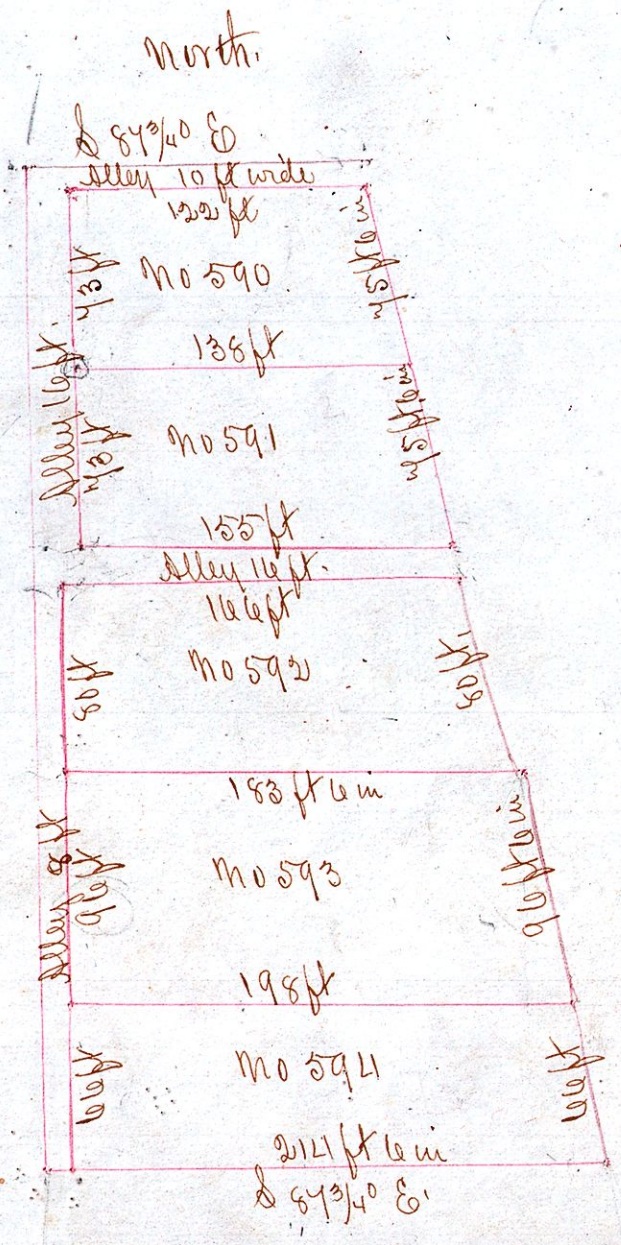 North.
S 87 3/4° E
Alley 10 ft wide
122 ft
73 ft
No 590
75 ft 6 in
138 ft
Alley 16 ft.
73 ft
No 591
75 ft 6 in
155 ft
Alley 16 ft.
166 ft
80 ft
No 592
80 ft.
183 ft 6 in
Alley 8 ft
96 ft
No 593
96 ft 6 in
198 ft
66 ft
No 594
66 ft
214 ft 6 in
S 87 3/4° E.